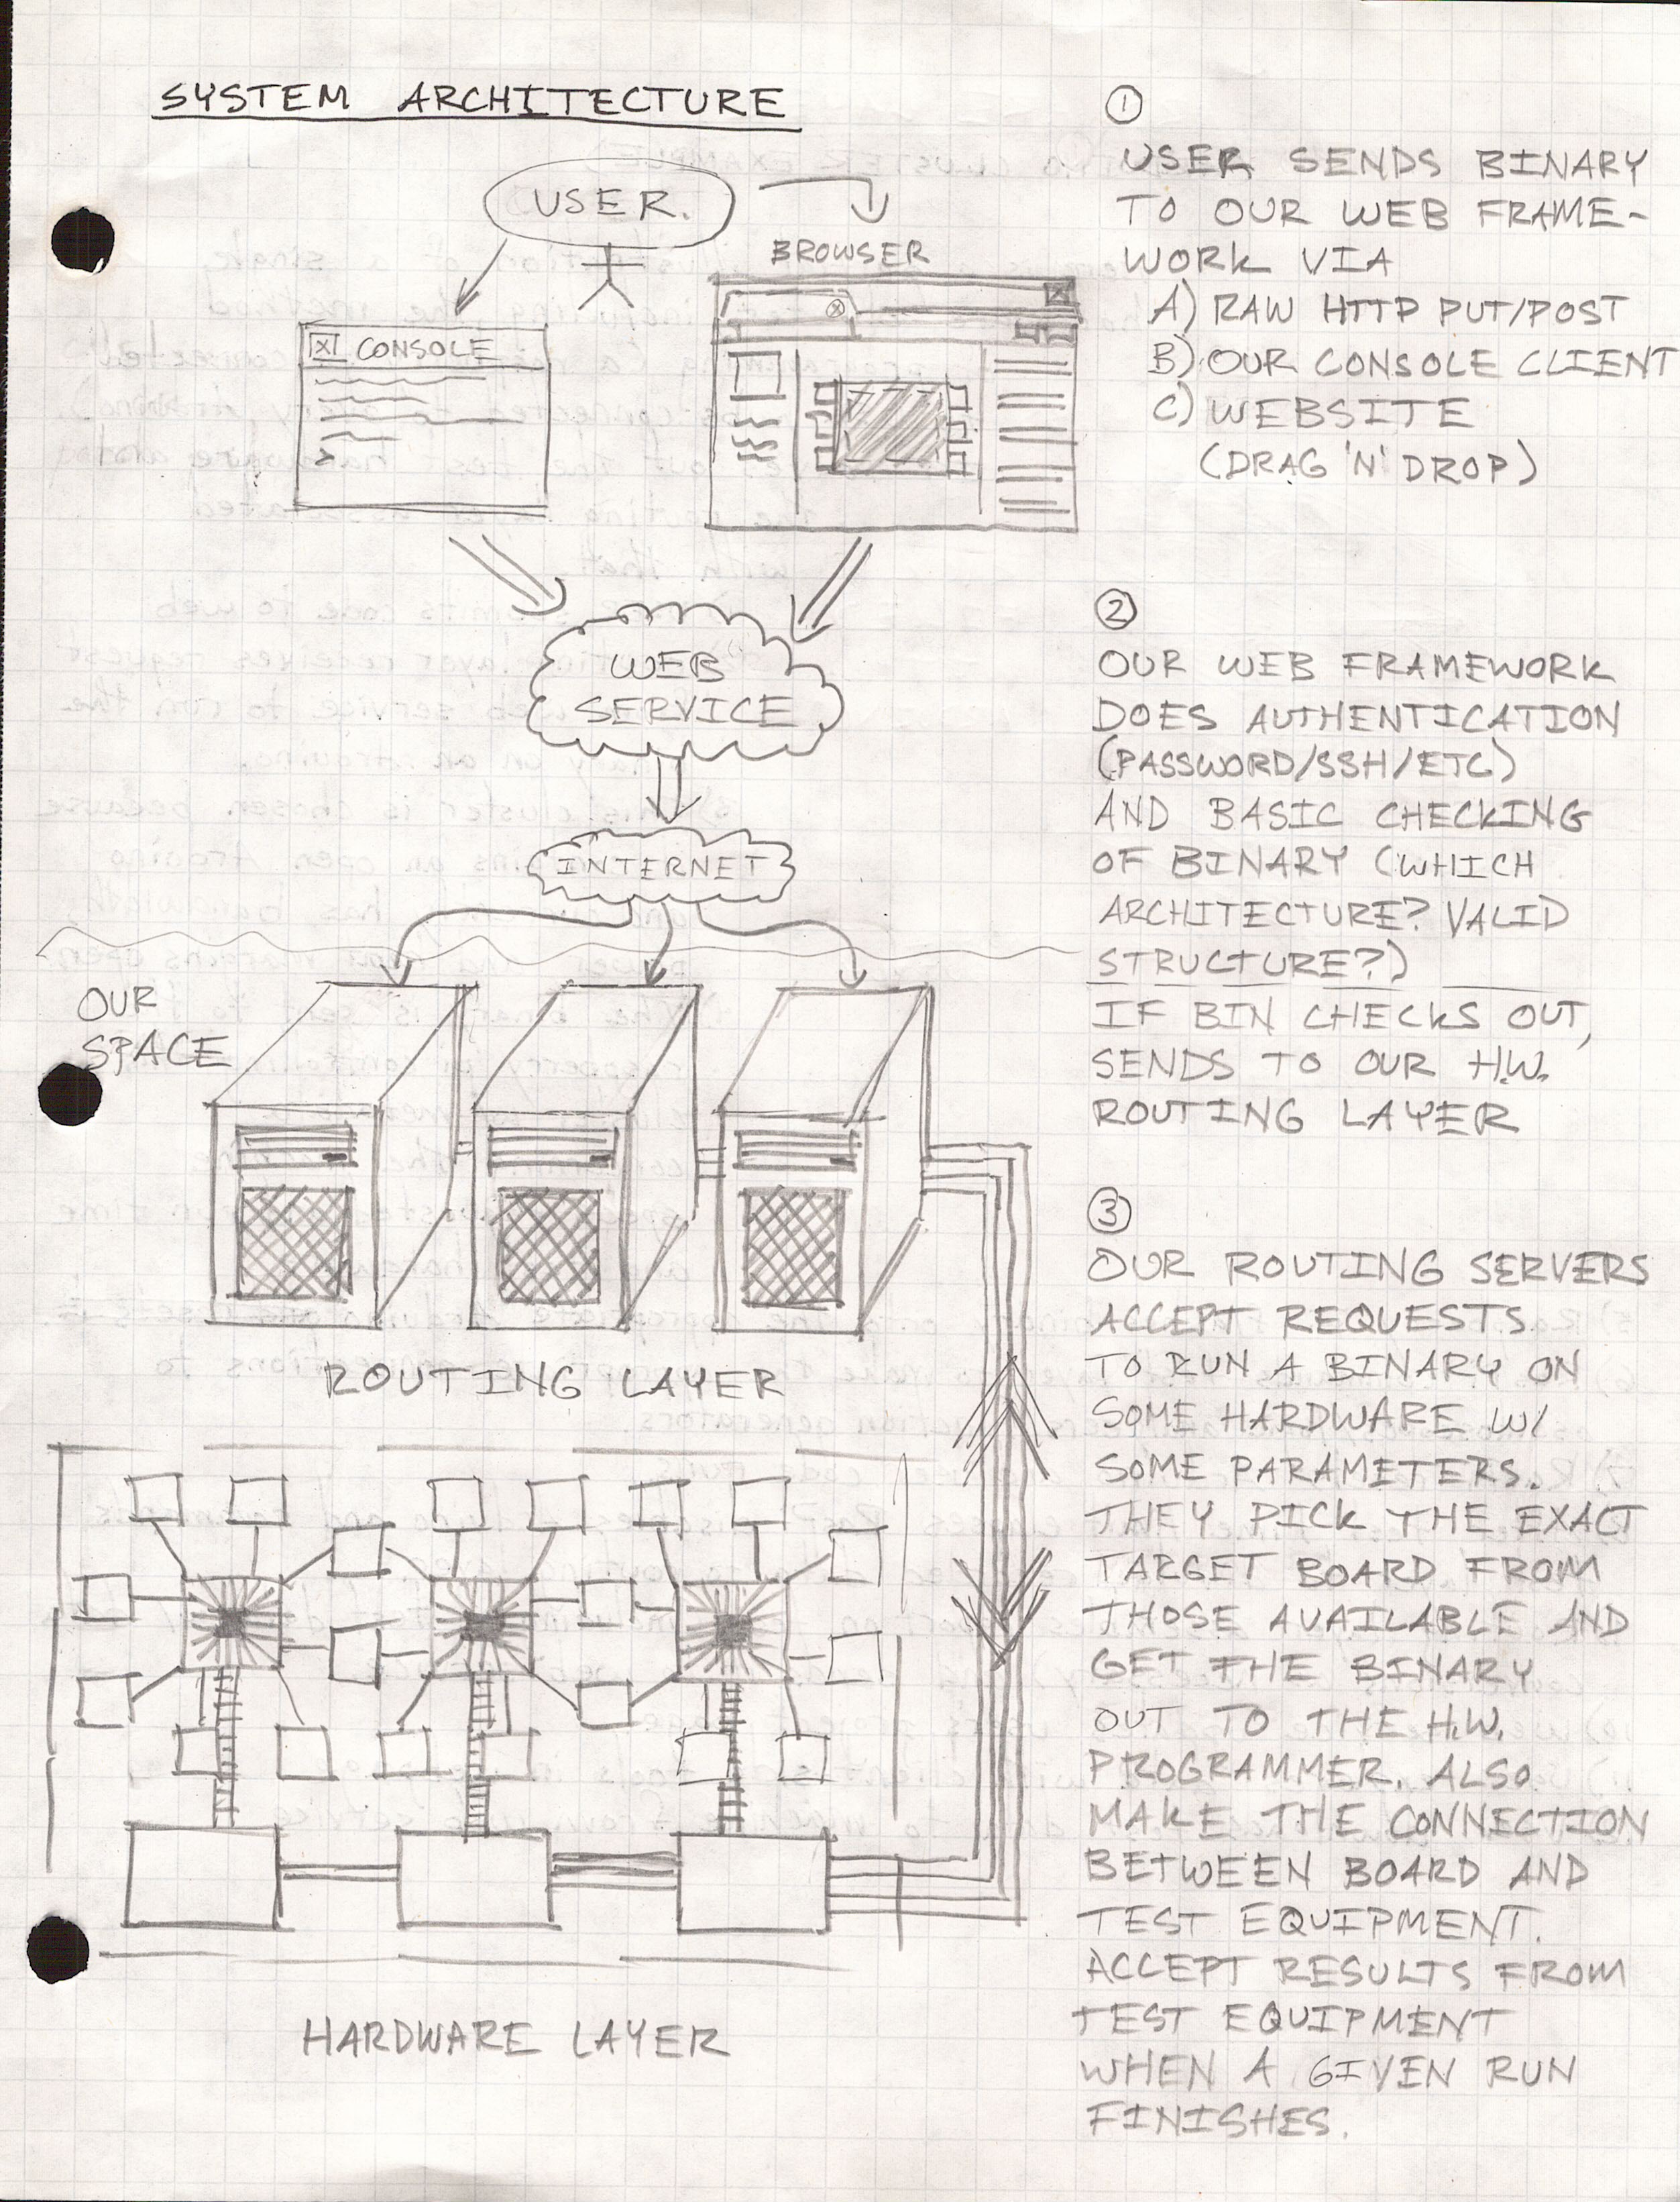 SYSTEM ARCHITECTURE
USER.
BROWSER
X CONSOLE
>
WEB
SERVICE
INTERNET
OUR
SPACE
ROUTING LAYER
HARDWARE LAYER
①
USER SENDS BINARY
TO OUR WEB FRAME-
WORK VIA
A) RAW HTTP PUT/POST
B) OUR CONSOLE CLIENT
C) WEBSITE
(DRAG 'N' DROP)
②
OUR WEB FRAMEWORK
DOES AUTHENTICATION
(PASSWORD/SSH/ETC)
AND BASIC CHECKING
OF BINARY (WHICH
ARCHITECTURE? VALID
STRUCTURE?)
IF BIN CHECKS OUT,
SENDS TO OUR H.W.
ROUTING LAYER
③
OUR ROUTING SERVERS
ACCEPT REQUESTS
TO RUN A BINARY ON
SOME HARDWARE W/
SOME PARAMETERS.
THEY PICK THE EXACT
TARGET BOARD FROM
THOSE AVAILABLE AND
GET THE BINARY
OUT TO THE H.W.
PROGRAMMER. ALSO
MAKE THE CONNECTION
BETWEEN BOARD AND
TEST EQUIPMENT.
ACCEPT RESULTS FROM
TEST EQUIPMENT
WHEN A GIVEN RUN
FINISHES.